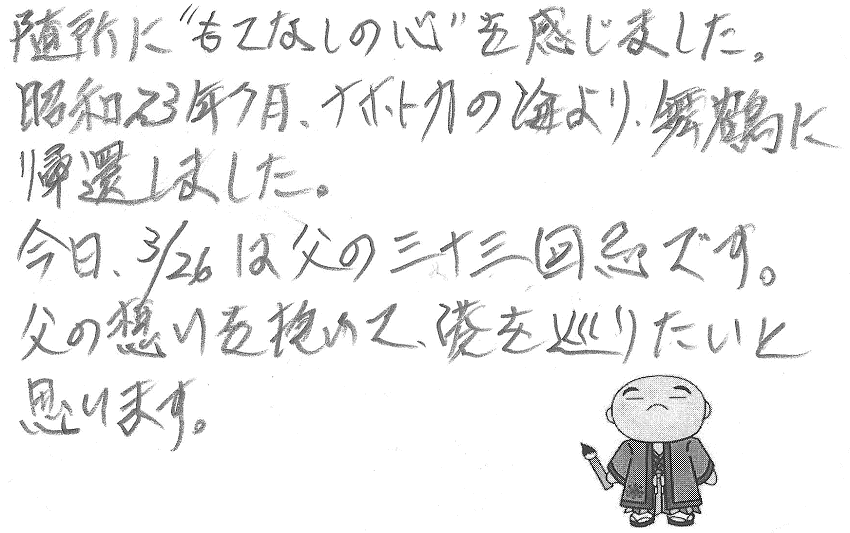 随所に“もてなしの心”を感じました。
昭和23年7月、ナホトカの海より、舞鶴に
帰還しました。
今日、3/26は父の三十三回忌です。
父の想いを抱いて、港を巡りたいと
思います。